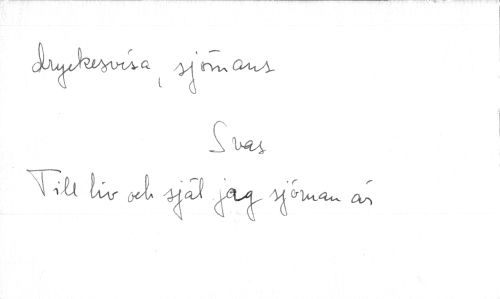 dryckesvisa, sjömans
Svas
Till liv och själ jag sjöman är